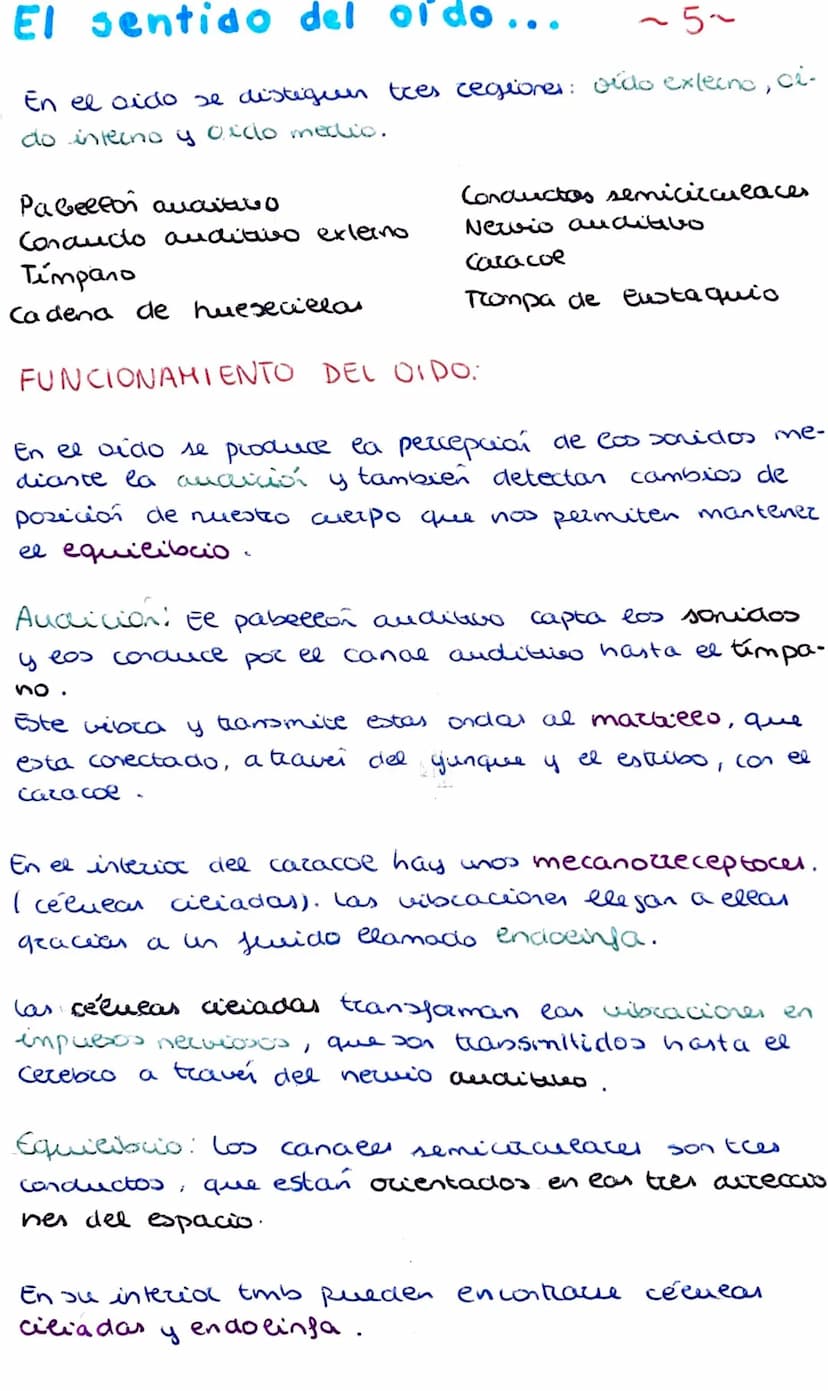 El sentido del oído... ~5~
En el oido se distiguen tres regiones: oído externo, oi-
do interno y Oido medio.
Pabellón auditivo
Conducto auditivo externo
Tímpano
Cadena de huesecillos
Conductos semicirculares
Nervio auditivo
Caracol
Trompa de Eustaquio
FUNCIONAMIENTO DEL OIDO:
En el oído se produce la percepción de los sonidos me-
diante la audición y también detectan cambios de
posición de nuestro cuerpo que nos permiten mantener
el equilibrio.
Audición: El pabellón auditivo capta los sonidos
y los conduce por el canal auditivo hasta el tímpa-
no.
Este vibra y transmite estas ondas al martillo, que
esta conectado, a través del yunque y el estribo, con el
caracol.
En el interior del caracol hay unos mecanorreceptores.
(células ciliadas). Las vibraciones llegan a ellas
gracias a un fluido llamado endolinfa.
Las células ciliadas transforman las vibraciones en
impulsos nerviosos, que son transmitidos hasta el
cerebro a través del nervio auditivo.
Equilibrio: Los canales semicirculares son tres
conductos, que están orientados en las tres direccio
nes del espacio.
En su interior tmb pueden encontrarse células
ciliadas y endolinfa.